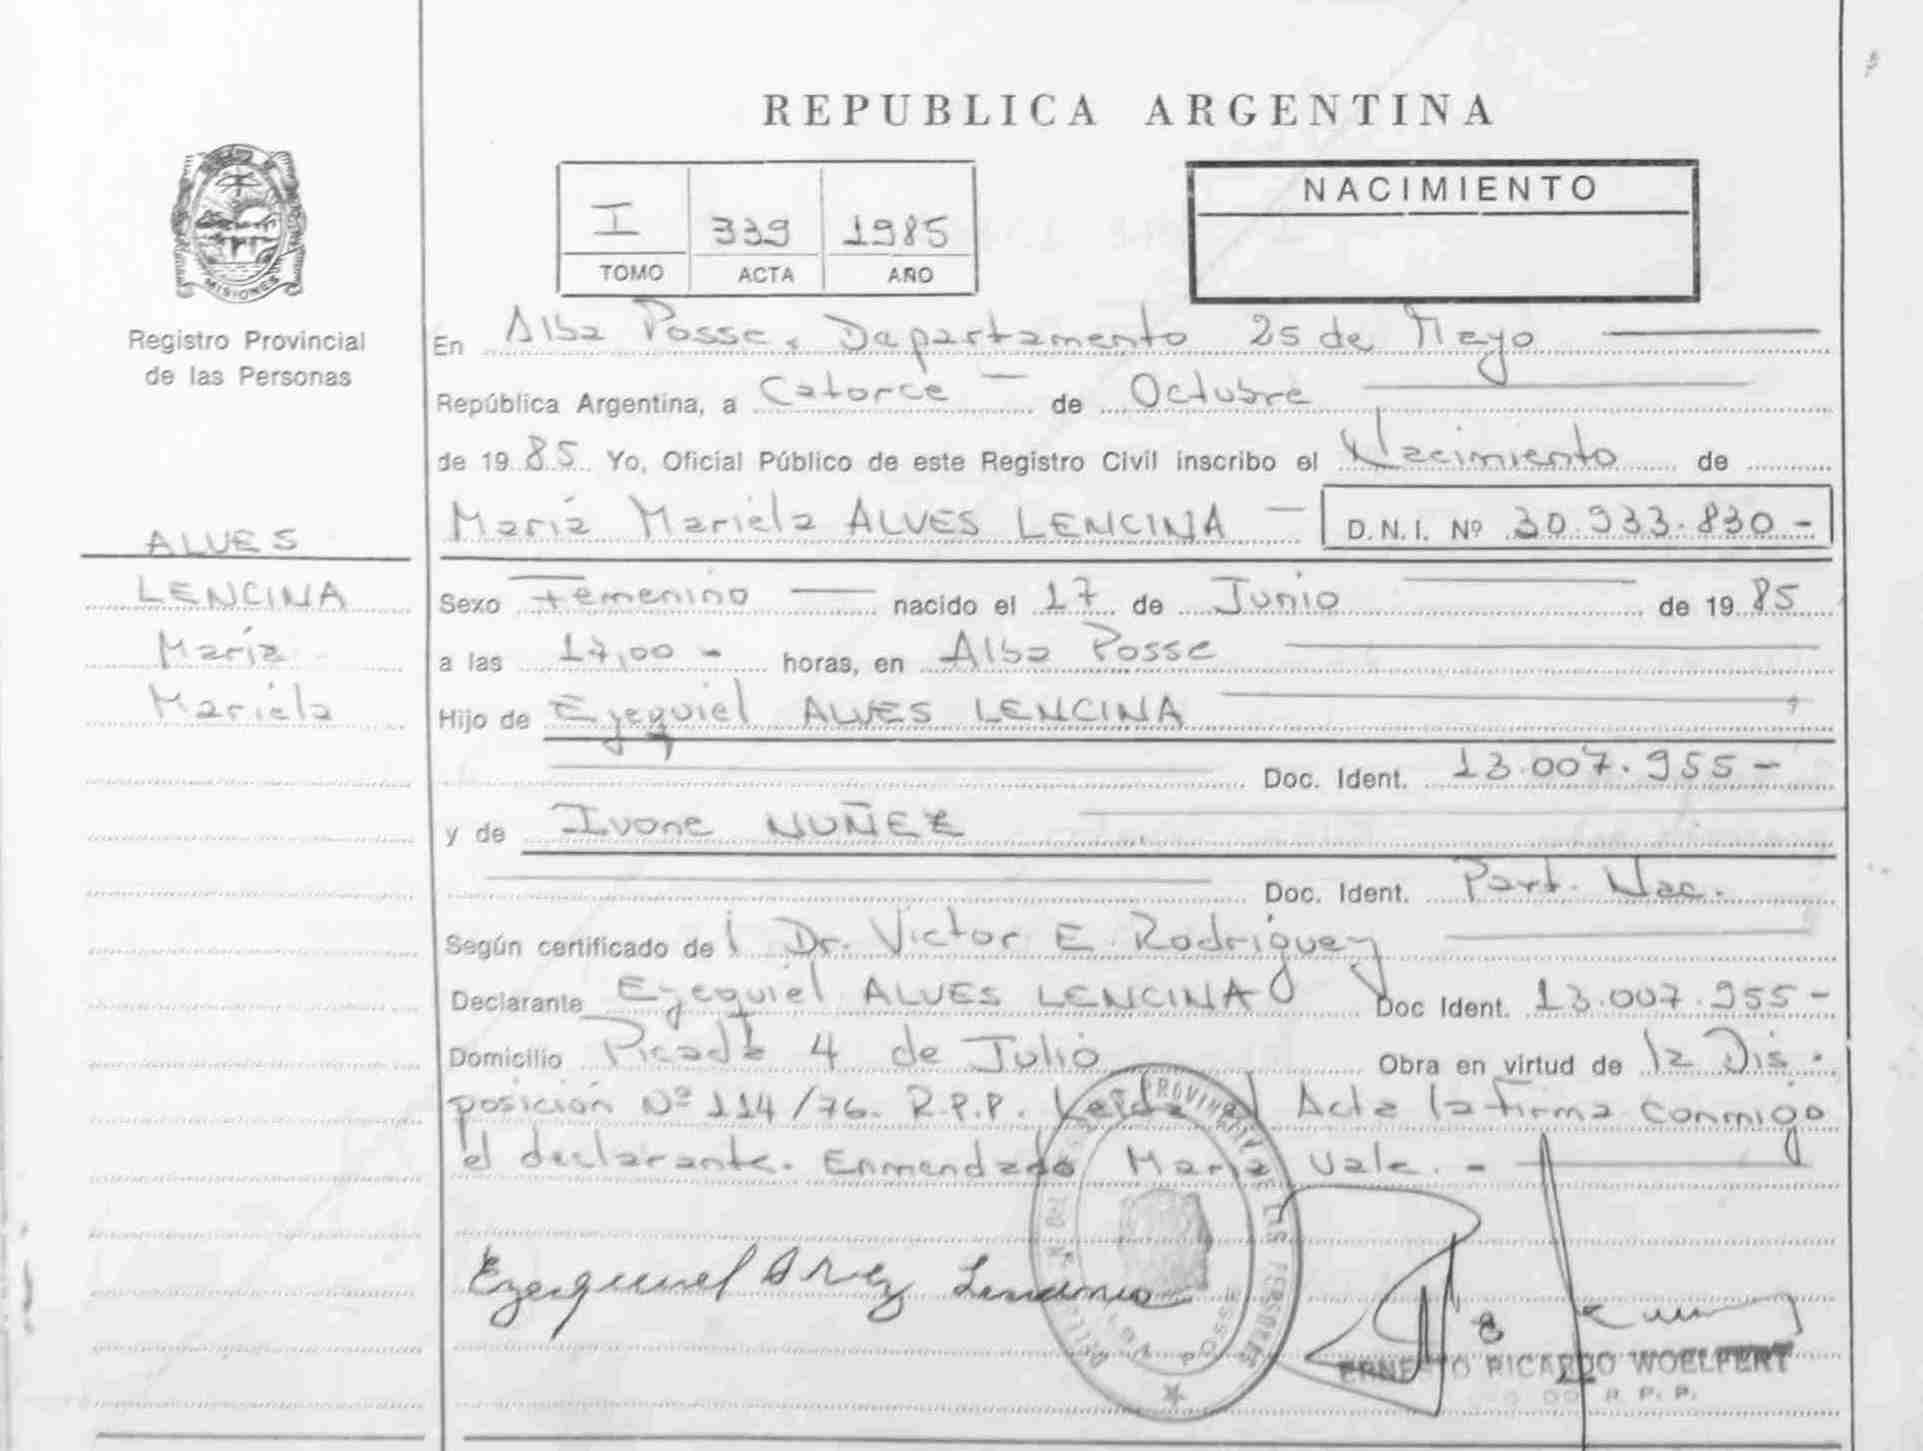 REPUBLICA ARGENTINA
MISIONES
Registro Provincial
de las Personas
I 339 1985
TOMO ACTA AÑO
NACIMIENTO
En Alba Posse, Departamento 25 de Mayo
República Argentina, a Catorce de Octubre
de 19 85 Yo, Oficial Público de este Registro Civil inscribo el Nacimiento de
María Mariela ALVES LENCINA D.N.I. Nº 30.933.830-
ALVES
LENCINA
María
Mariela
Sexo Femenino nacido el 17 de Junio de 19 85
a las 17,00 - horas, en Alba Posse
Hijo de Ezequiel ALVES LENCINA
Doc. Ident. 13.007.955-
y de Ivone NUÑEZ
Doc. Ident. Part. Nac.
Según certificado del Dr. Victor E. Rodriguez
Declarante Ezequiel ALVES LENCINA Doc Ident. 13.007.955-
Domicilio Picada 4 de Julio Obra en virtud de la Dis-
posición Nº 114/76. R.P.P. Leída el Acta la firma conmigo
el declarante. Enmendado María Vale. -
Ezequiel Lencina
PROVINCIAL DE LAS PERSONAS
POSSE
ERNESTO RICARDO WOELFERT
R. P. P.